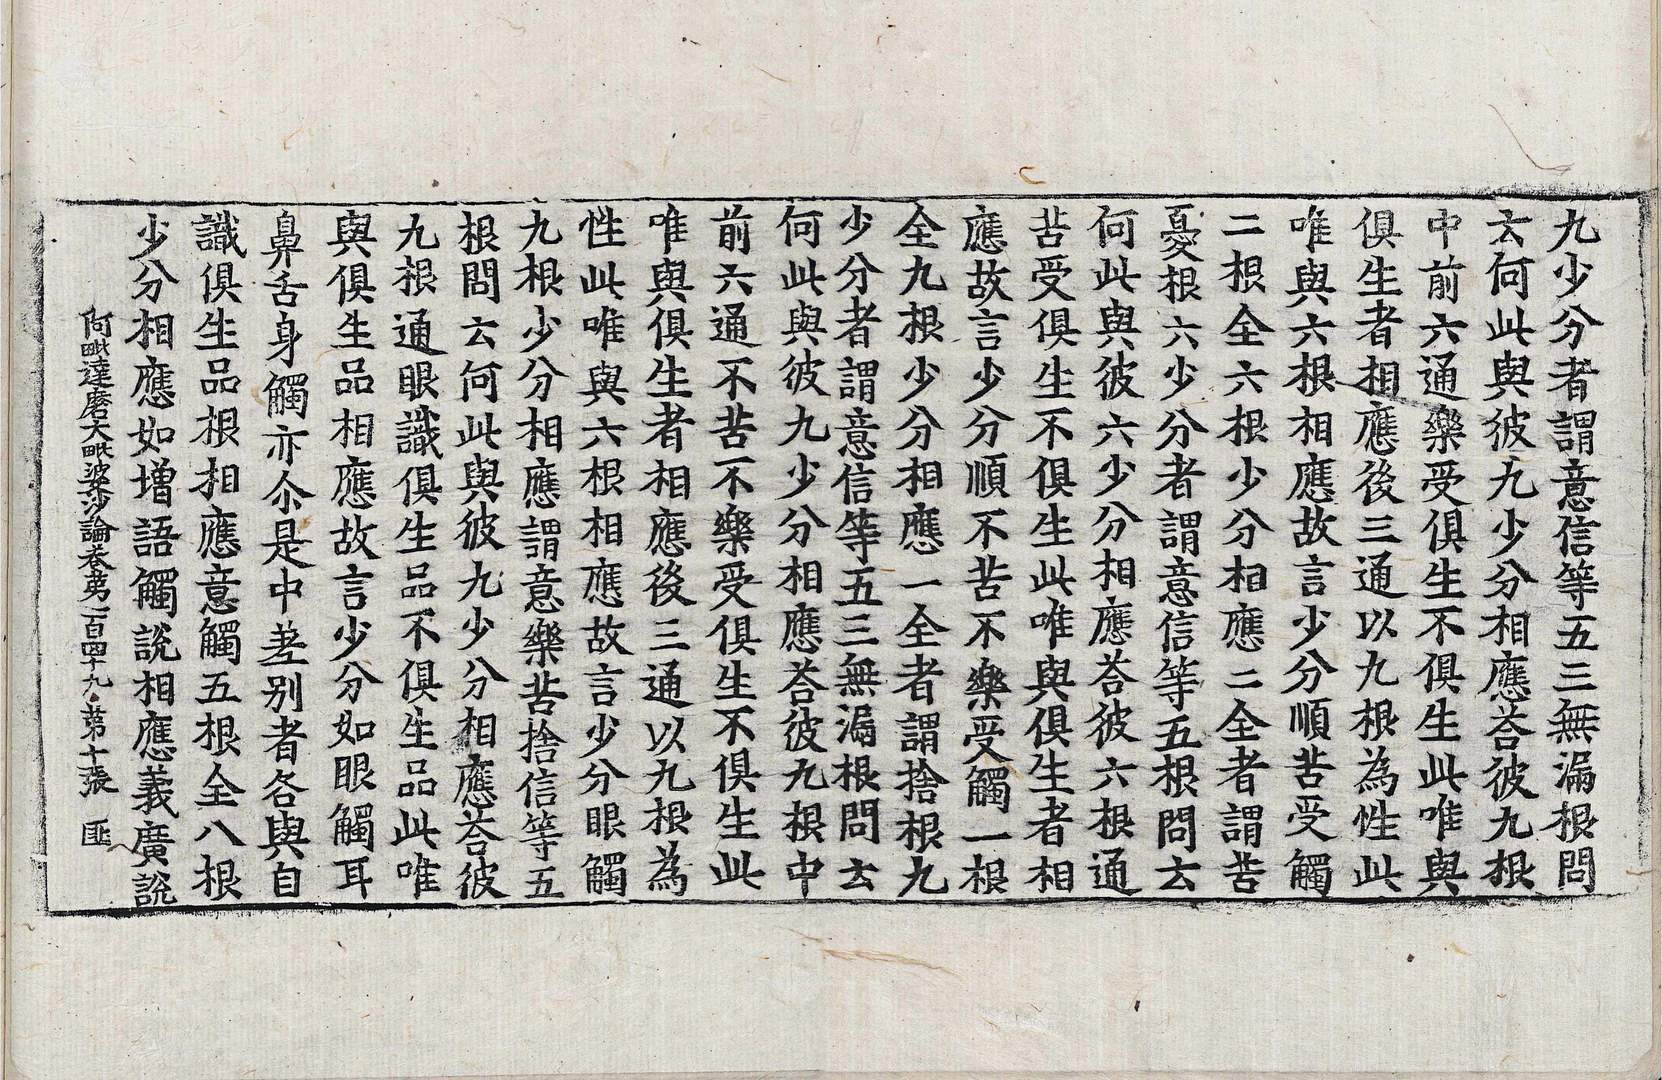 九少分者謂意信等五三無漏根問
云何此與彼九少分相應荅彼九根
中前六通樂受俱生不俱生此唯與
俱生者相應後三通以九根為性此
唯與六根相應故言少分順苦受觸
二根全六根少分相應二全者謂苦
憂根六少分者謂意信等五根問云
何此與彼六少分相應荅彼六根通
苦受俱生不俱生此唯與俱生者相
應故言少分順不苦不樂受觸一根
全九根少分相應一全者謂捨根九
少分者謂意信等五三無漏根問云
何此與彼九少分相應荅彼九根中
前六通不苦不樂受俱生不俱生此
唯與俱生者相應後三通以九根為
性此唯與六根相應故言少分眼觸
九根少分相應謂意樂苦捨信等五
根問云何此與彼九少分相應荅彼
九根通眼識俱生品不俱生品此唯
與俱生品相應故言少分如眼觸耳
鼻舌身觸亦尒是中差別者各與自
識俱生品根相應意觸五根全八根
少分相應如增語觸說相應義廣說
阿毗達磨大毗婆沙論卷苐一百四十九 苐十張 匪